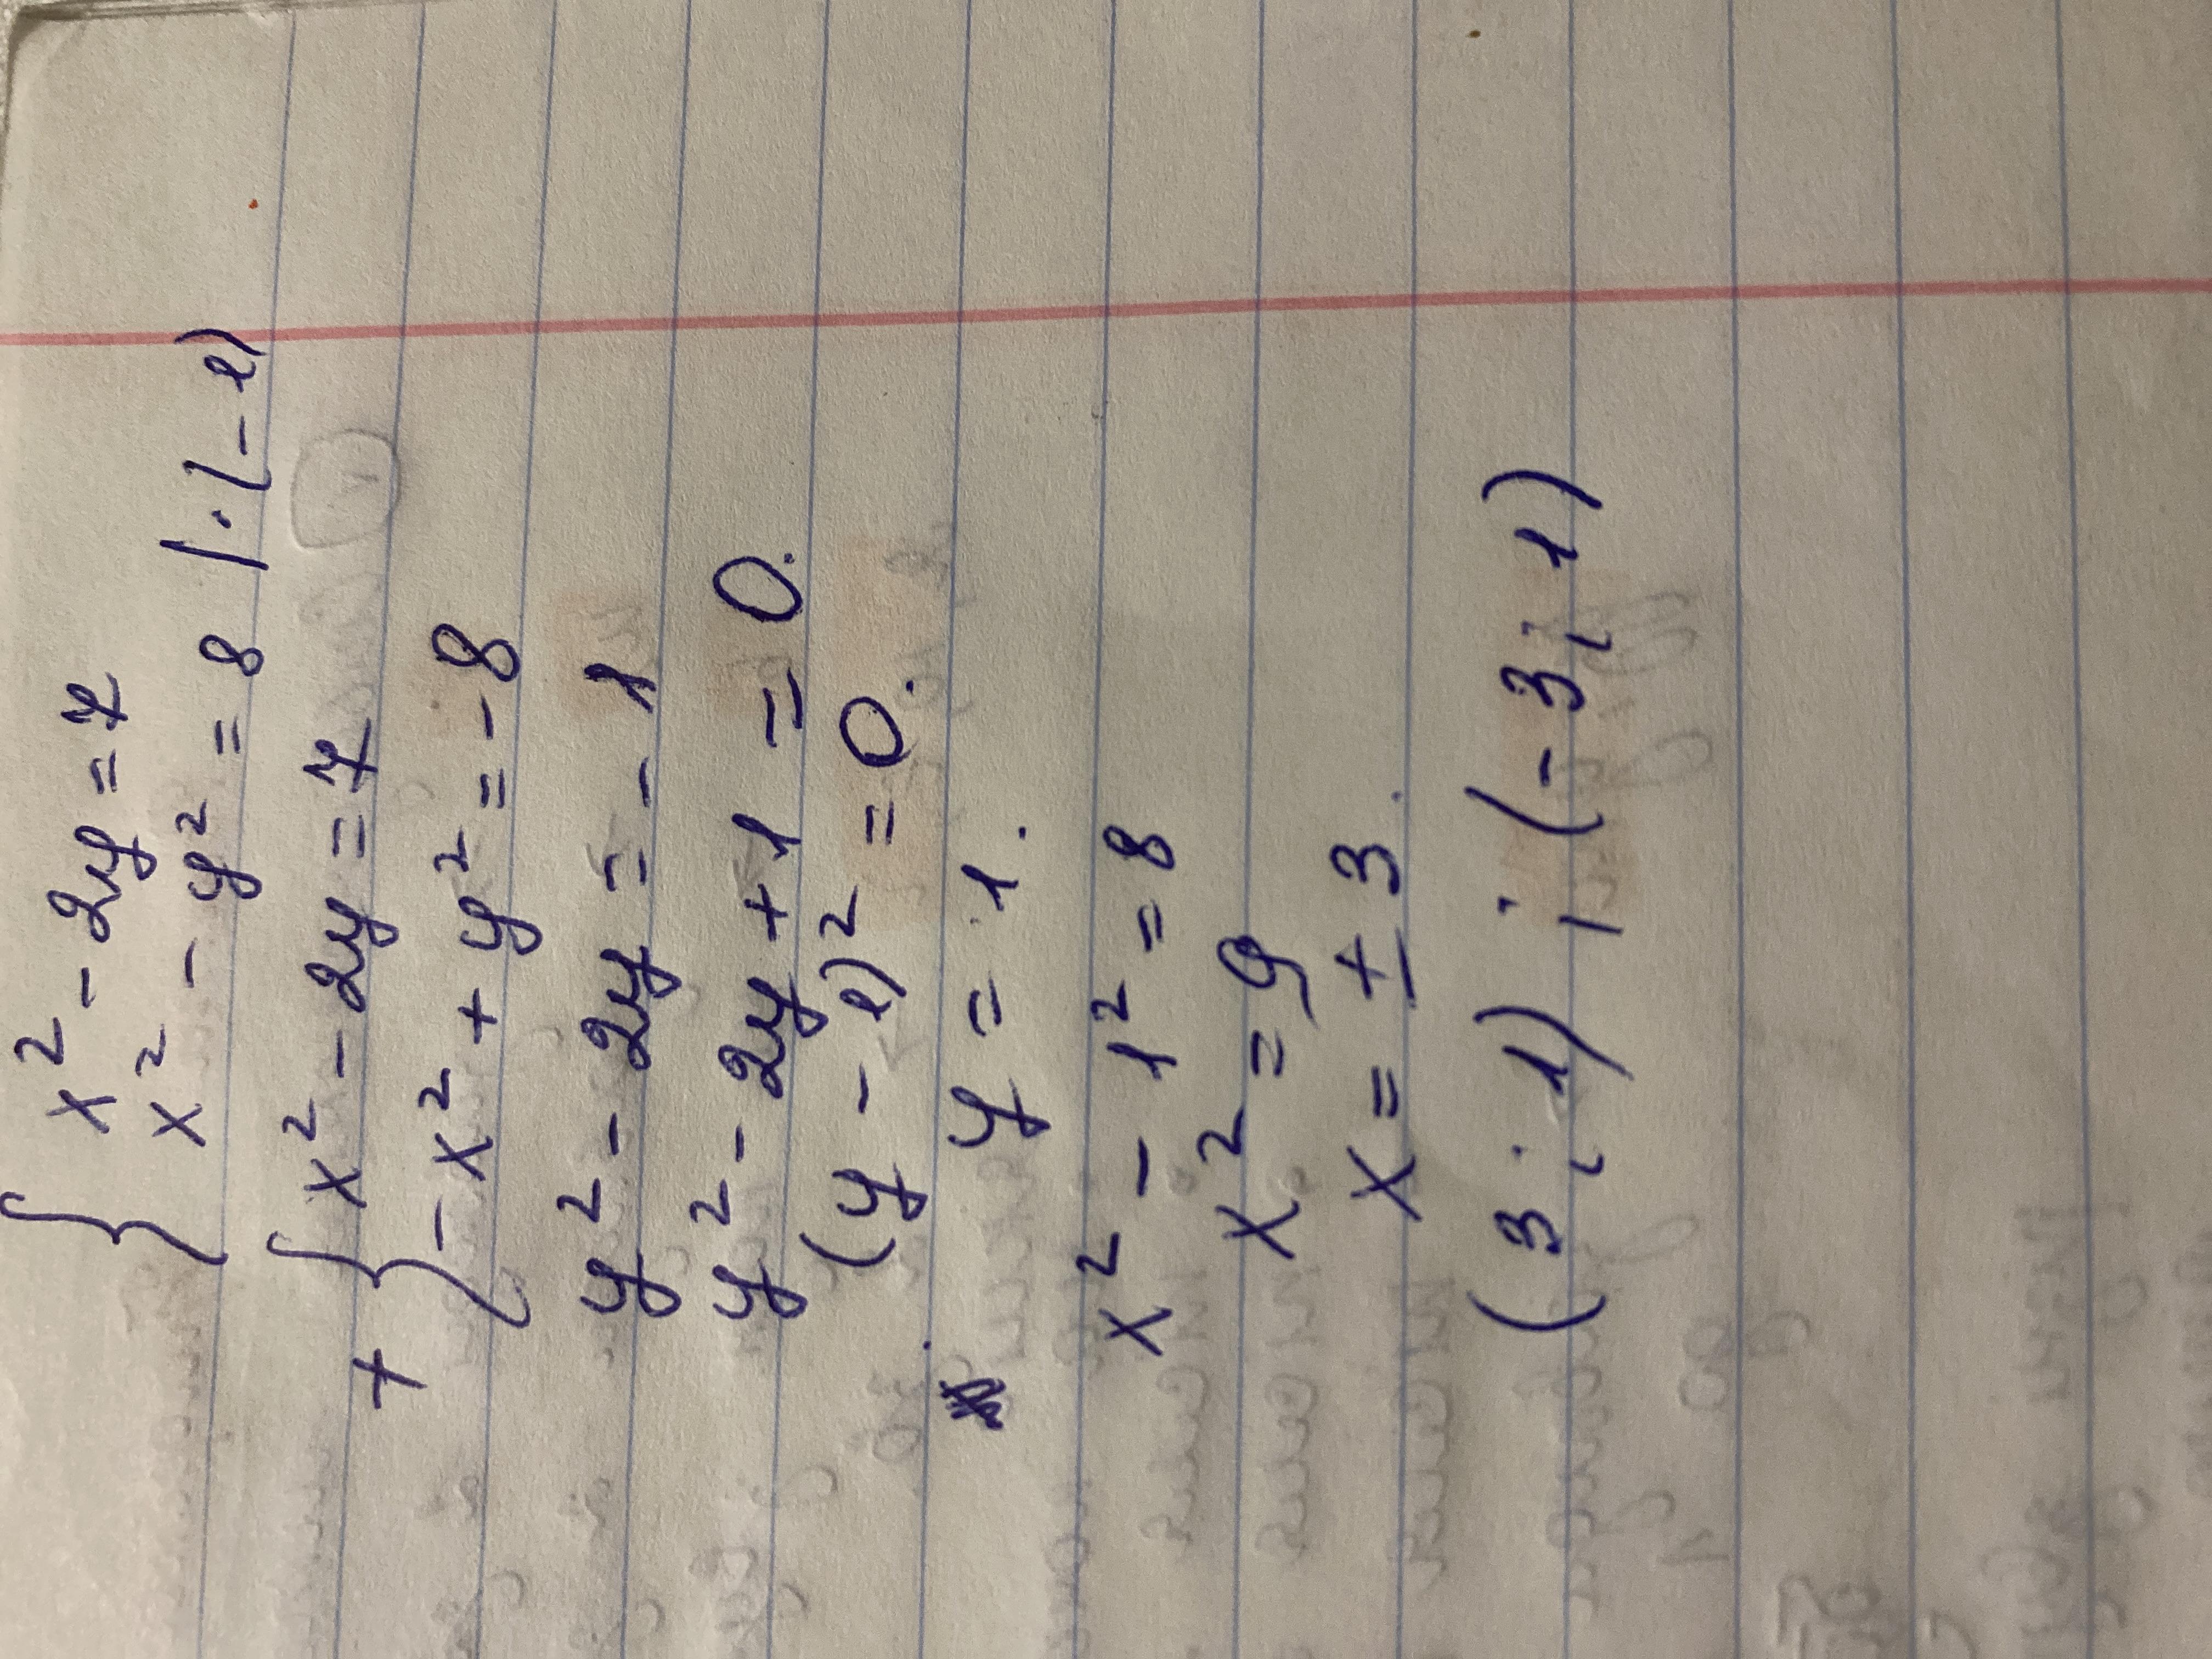 { x² - 2y = 7
x² - y² = 8 | · (-1)
+ { x² - 2y = 7
-x² + y² = -8
y² - 2y = -1
y² - 2y + 1 = 0.
(y - 1)² = 0.
y = 1.
x² - 1² = 8
x² = 9
x = ± 3.
(3; 1) ; (-3; 1)